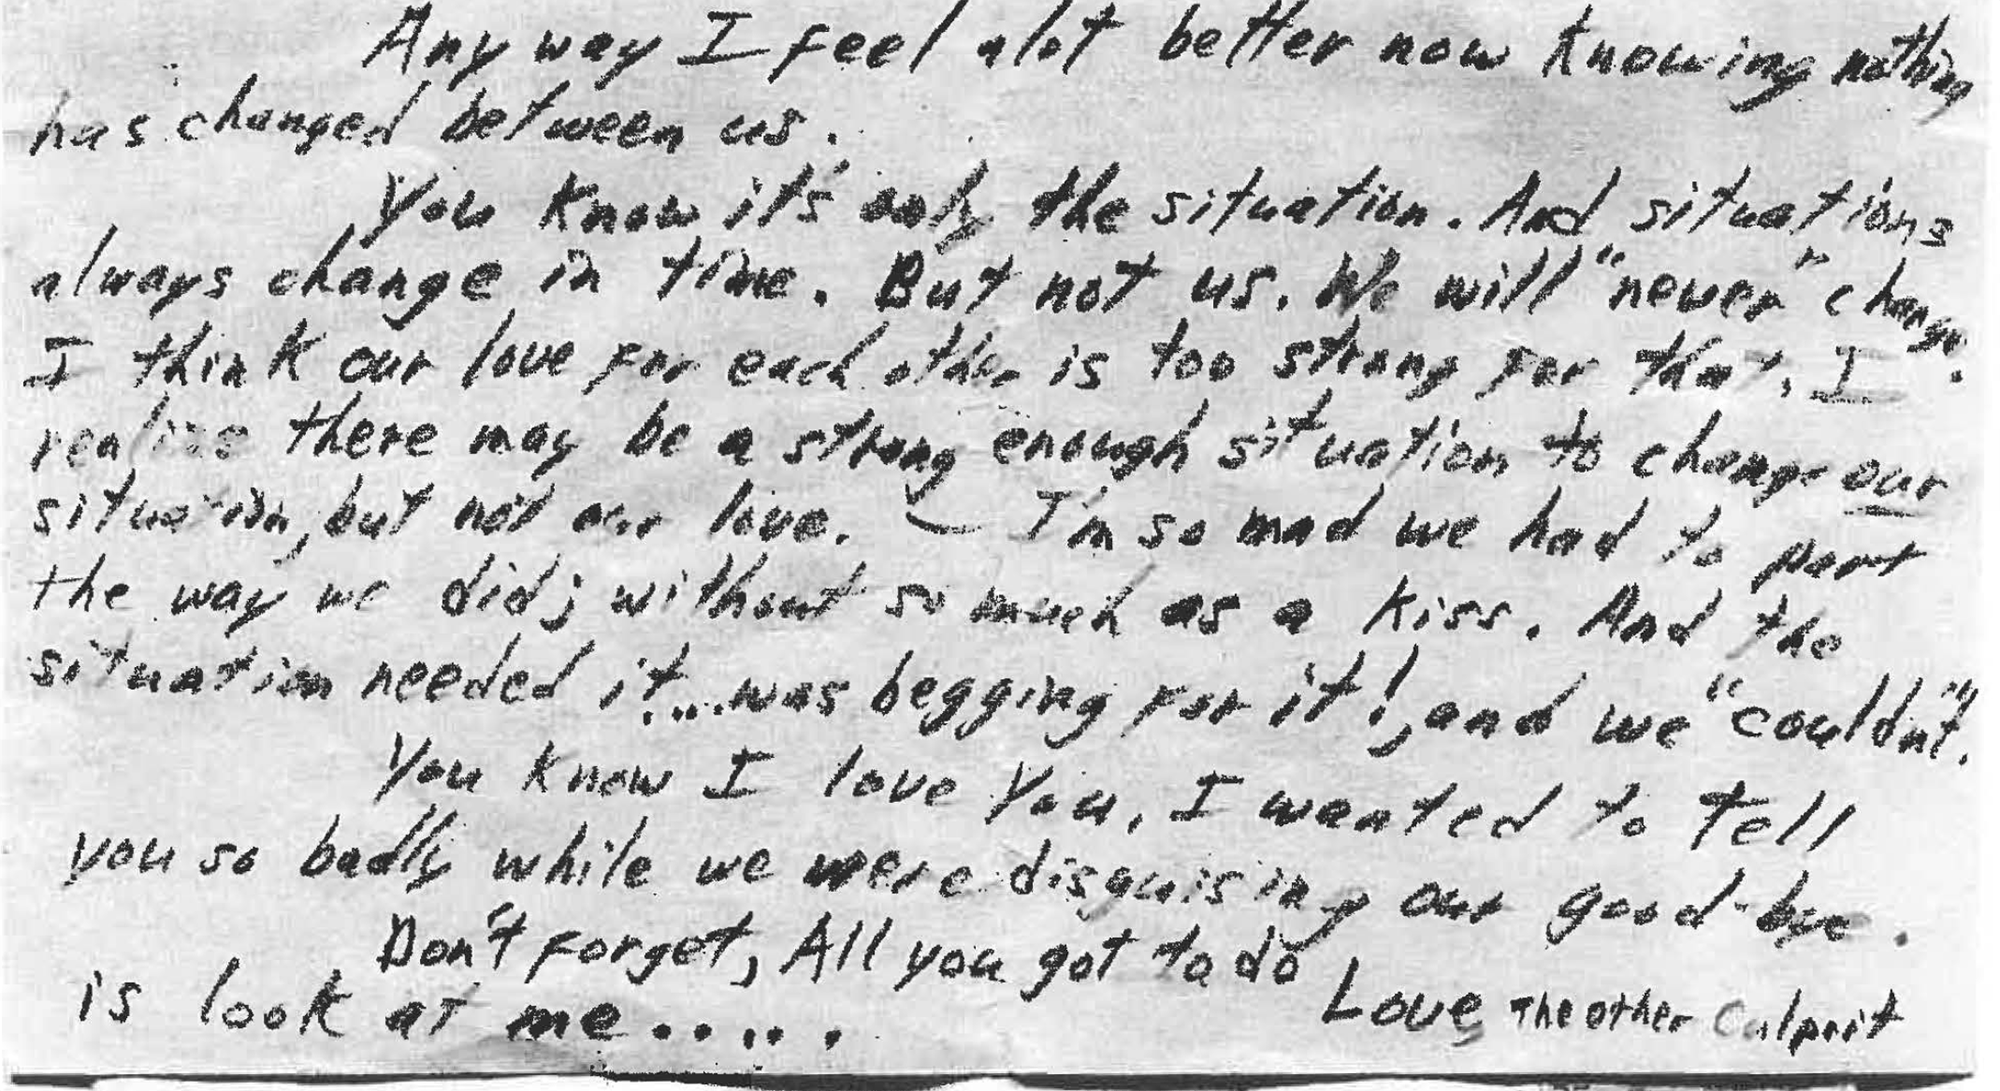 Any way I feel alot better now knowing nothing
has changed between us.
You know it's only the situation. And situations
always change in time. But not us. We will "never" change.
I think our love for each other is too strong for that. I
realize there may be a strong enough situation to change our
situation, but not our love. — I'm so mad we had to part
the way we did; without so much as a kiss. And the
situation needed it....was begging for it!, and we "couldn't".
You know I love You, I wanted to tell
you so badly while we were disguising our good-bye.
Don't forget, All you got to do
is look at me.....
Love, The other Culprit